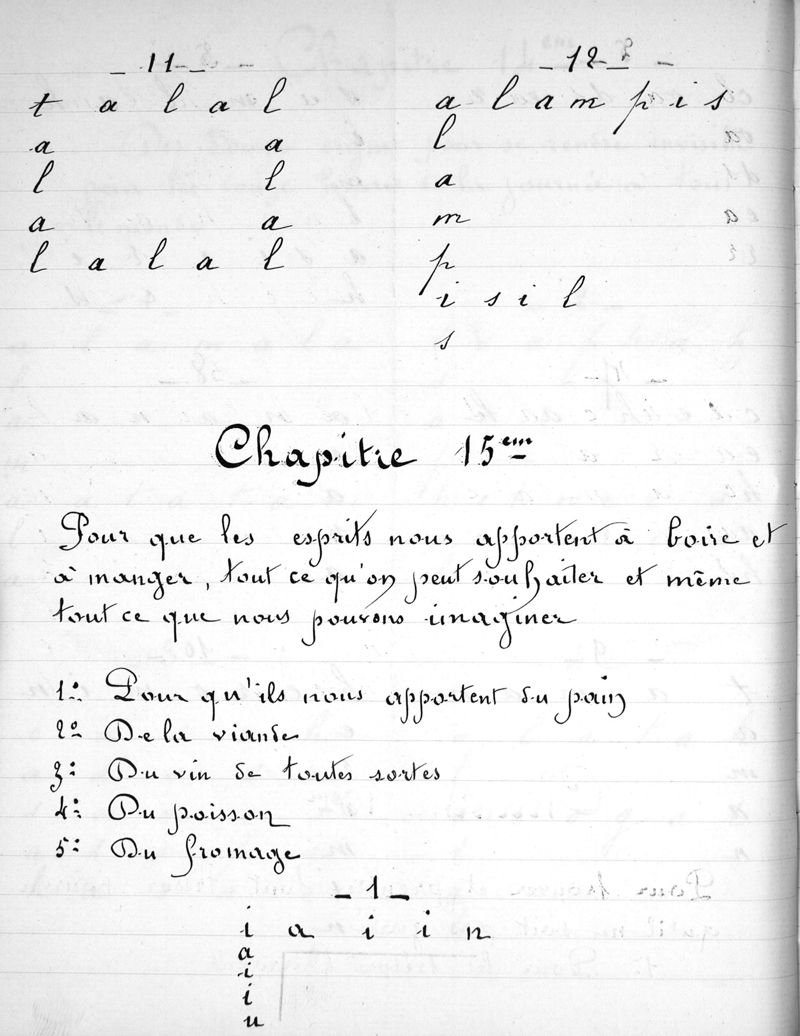 – 11 –
t a l a l
a a
l l
a a
l a l a l
– 12 –
a l a m p i s
l
a
m
p
i s i l
s
Chapitre 15eme
Pour que les esprits nous apportent à boire et
à manger, tout ce qu'on peut souhaiter et même
tout ce que nous pouvons imaginer
1o Pour qu'ils nous apportent du pain
2o De la viande
3o Du vin de toutes sortes
4o Du poisson
5o Du fromage
– 1 –
i a i i n
a
i
i
u